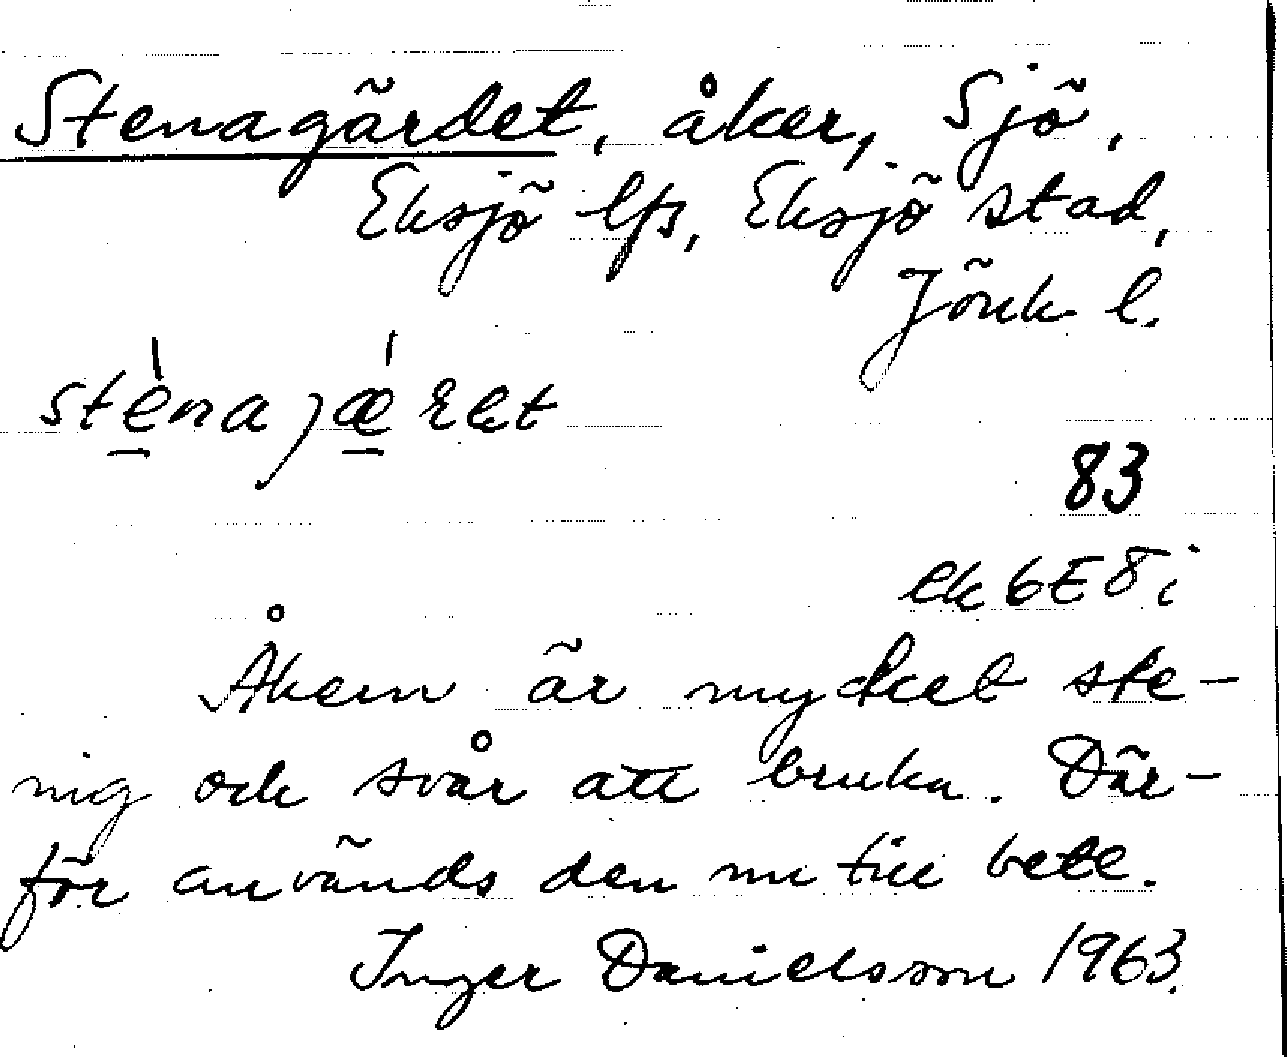 Stenagärdet, åker, Sjö,
Eksjö lfs, Eksjö stad,
Jönk l.
stènajæ̀ret
83
ek 6E8i
Åkern är mycket ste-
nig och svår att bruka. Där-
för används den nu till bete.
Inger Danielsson 1963.